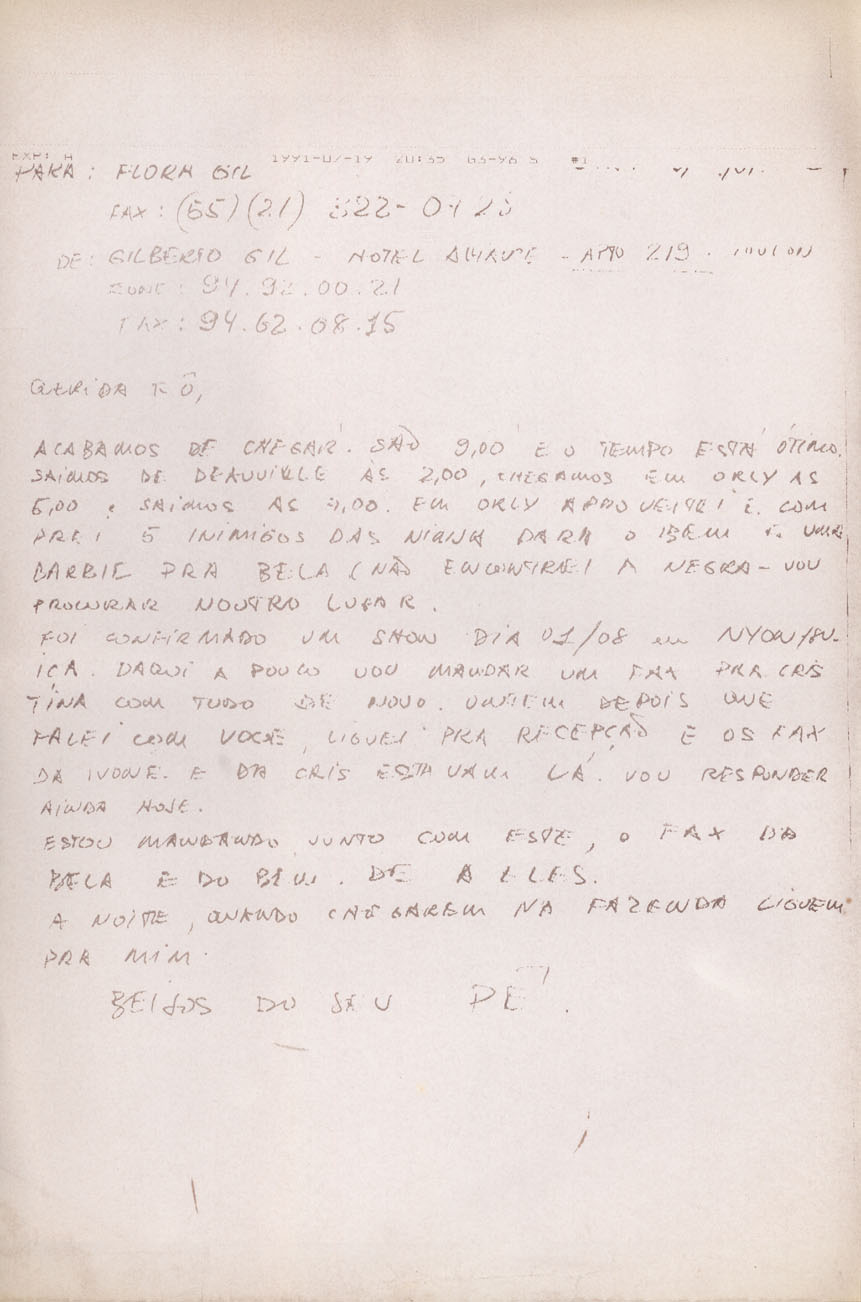 1991-07-19 20:35 G3-96 S #1
PARA: FLORA GIL
FAX: (55)(21) 322-04
DE: GILBERTO GIL - HOTEL - APTO 219. TOULON
FONE: 94.92.00.21
FAX: 94.62.08.15
QUERIDA FÔ,
ACABAMOS DE CHEGAR. SÃO 9,00 E O TEMPO ESTÁ ÓTIMO.
SAÍMOS DE DEAUVILLE ÀS 2,00, CHEGAMOS EM ORLY AS
5,00 E SAÍMOS AS 7,00. EM ORLY APROVEITEI E COM
PREI 5 INIMIGOS DAS NINJA PARA O BEM E UMA
BARBIE PRA BELA (NÃO ENCONTREI A NEGRA - VOU
PROCURAR NOUTRO LUGAR.
FOI CONFIRMADO UM SHOW DIA 01/08 em NYON/SU-
IÇA. DAQUI A POUCO VOU MANDAR UM FAX PRA CRIS
TINA COM TUDO DE NOVO. ONTEM DEPOIS QUE
FALEI COM VOCÊ, LIGUEI PRA RECEPÇÃO E OS FAX
DA IVONE E DA CRIS ESTAVAM LÁ. VOU RESPONDER
AINDA HOJE.
ESTOU MANDANDO, JUNTO COM ESTE, O FAX DA
BELA E DO BEM. DE A ELES.
A NOITE, QUANDO CHEGAREM NA FAZENDA LIGUEM
PRA MIM.
BEIJOS DO SEU PÊ.